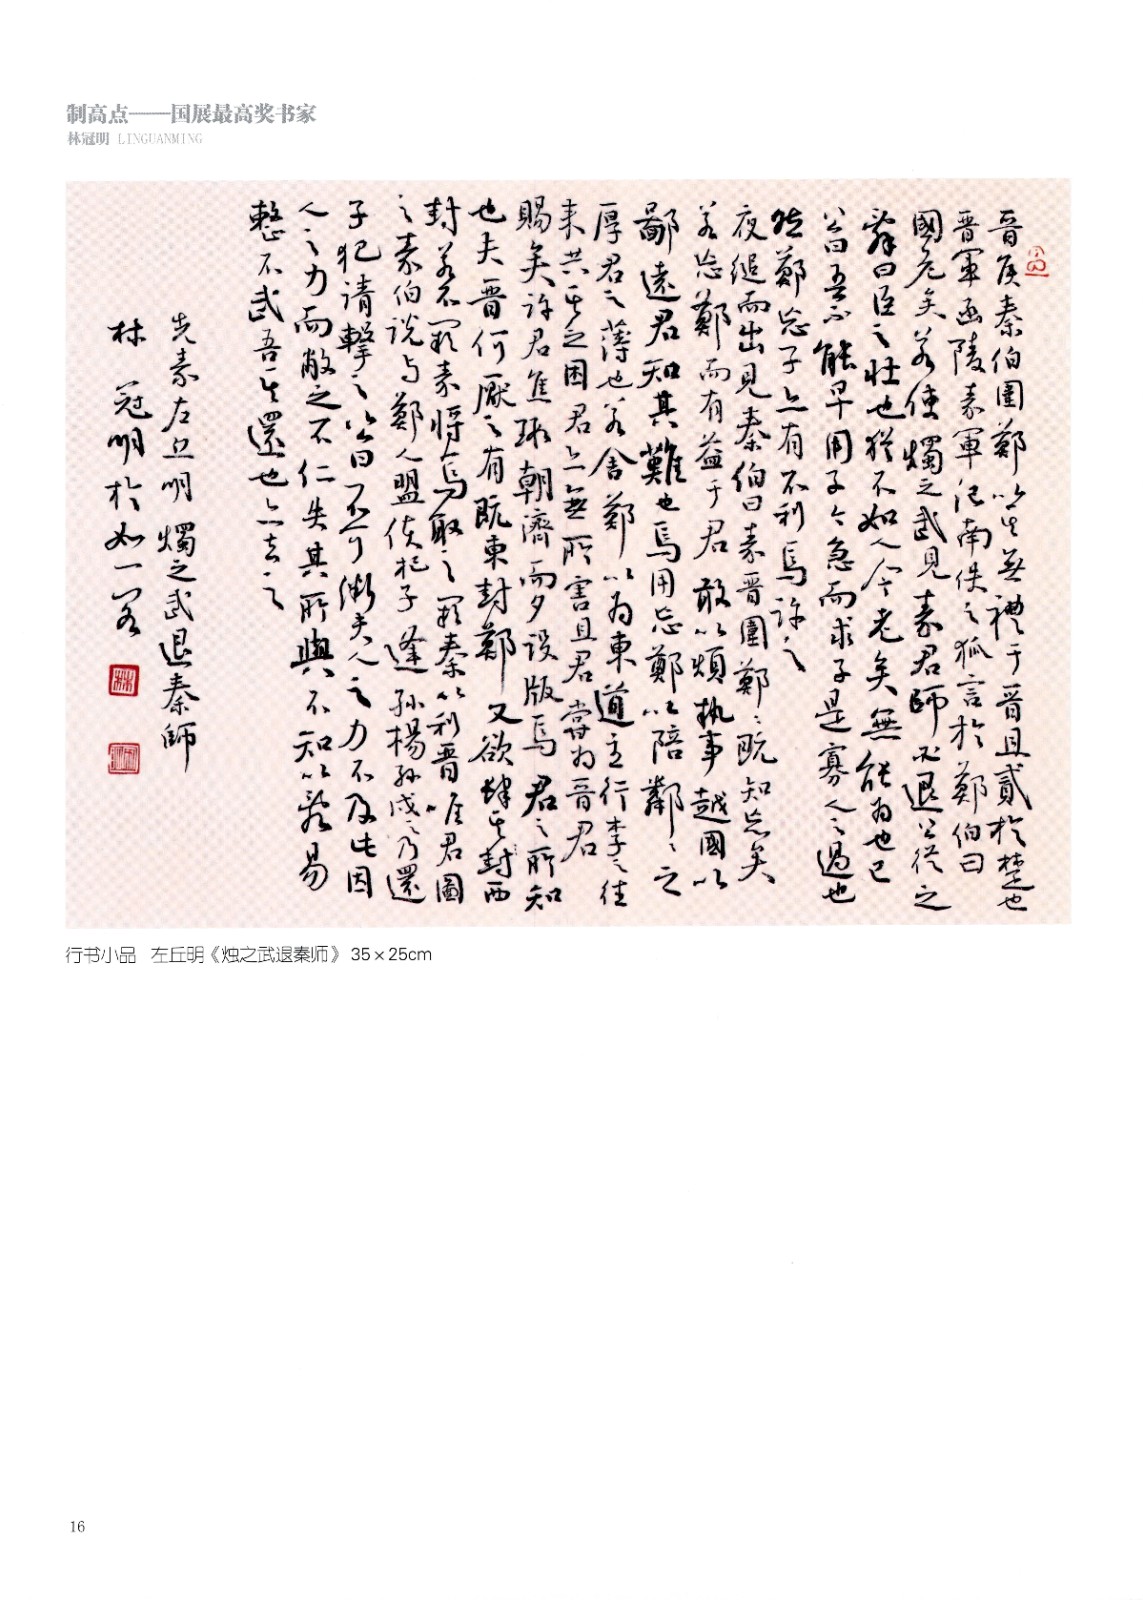 制高点——国展最高奖书家
林冠明 LINGUANMING
晋侯秦伯圍鄭以其無禮于晋且貳於楚也
晋軍函陵秦軍氾南佚之狐言於鄭伯曰
國危矣若使燭之武見秦君師必退公從之
辭曰臣之壯也猶不如人今老矣無能為也已
公曰吾不能早用子今急而求子是寡人之過也
然鄭亡子亦有不利焉許之
夜縋而出見秦伯曰秦晋圍鄭〻既知亡矣
若亡鄭而有益于君敢以煩執事越國以
鄙遠君知其難也焉用亡鄭以陪鄰〻之
厚君之薄也若舍鄭以為東道主行李之往
来共其乏困君亦無所害且君嘗為晋君
賜矣許君焦瑕朝濟而夕設版焉君之所知
也夫晋何厭之有既東封鄭又欲肆其封西
封若不闕秦將焉取之闕秦以利晋唯君圖
之秦伯說与鄭人盟使杞子逢孫楊孫戍之乃還
子犯請擊之公曰不可微夫人之力不及此因
人之力而敝之不仁失其所與不知以亂易
整不武吾其還也亦去之
先秦左丘明燭之武退秦師
林冠明於如一
行书小品 左丘明《烛之武退秦师》35×25cm
16